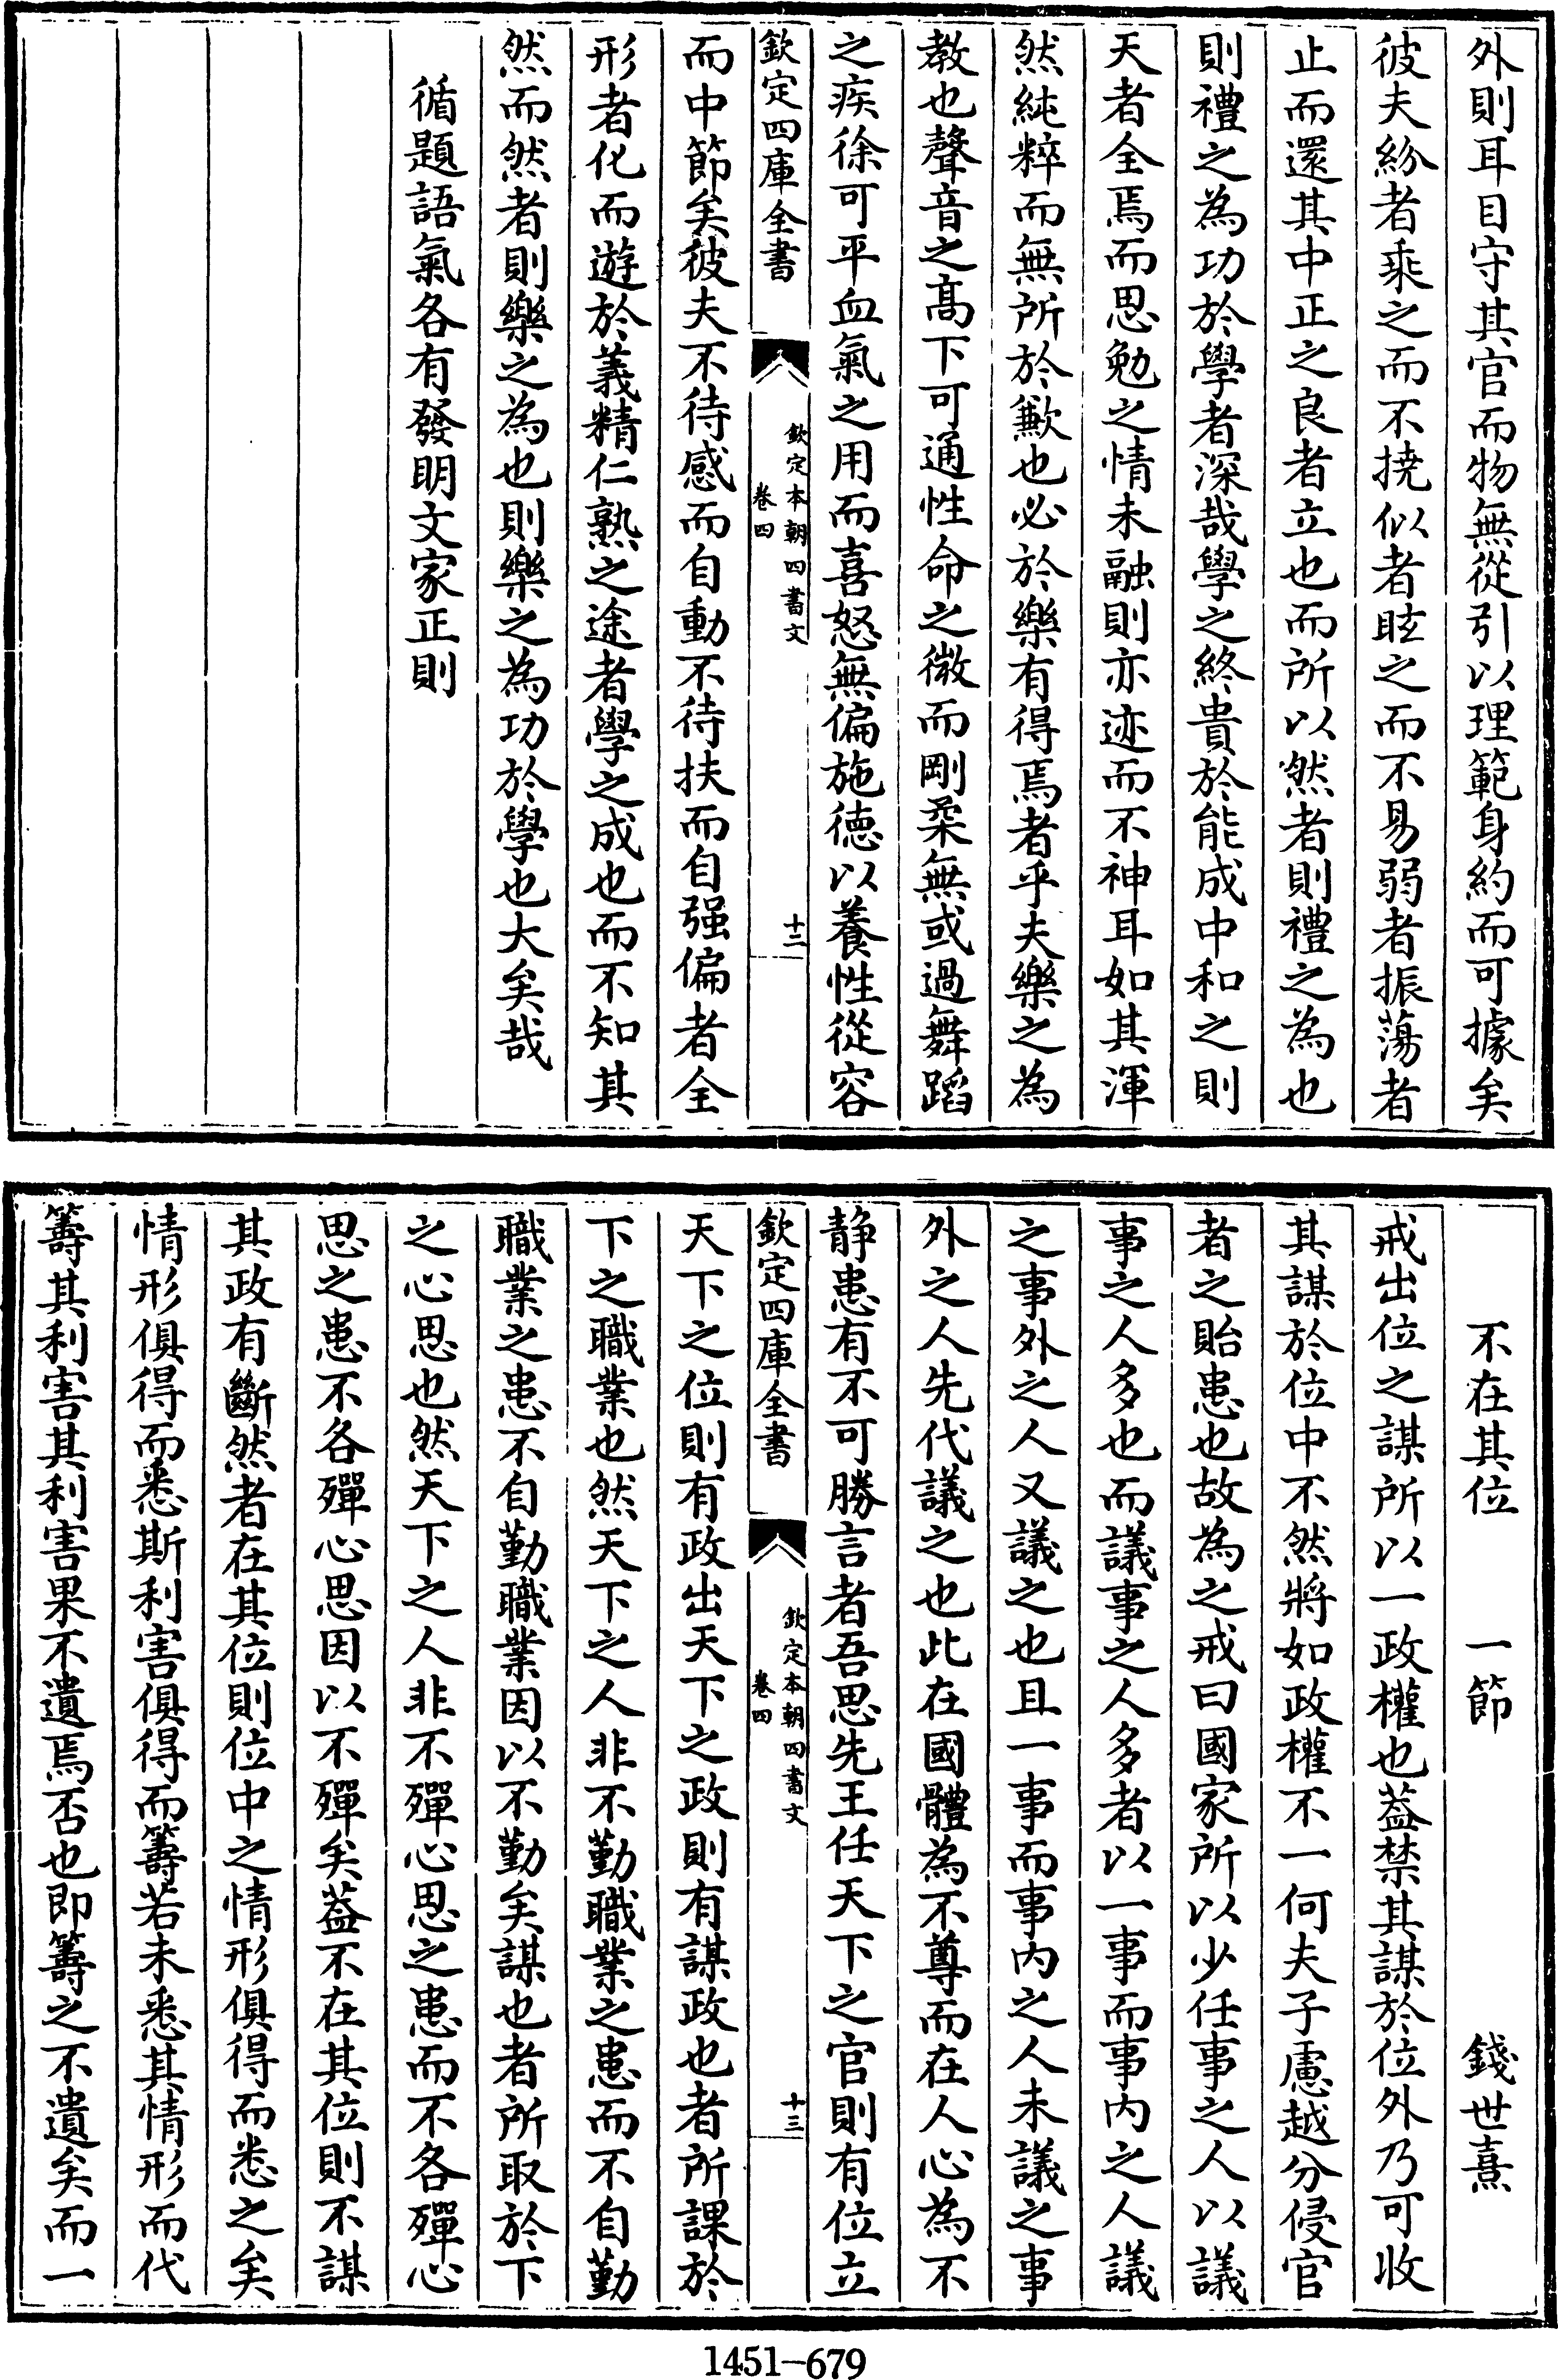 外則耳目守其官而物無從引以理範身約而可據矣
彼夫紛者乘之而不撓似者眩之而不易弱者振蕩者
止而還其中正之良者立也而所以然者則禮之為也
則禮之為功於學者深哉學之終貴於能成中和之則
天者全焉而思勉之情未融則亦迹而不神耳如其渾
然純粹而無所於歉也必於樂有得焉者乎夫樂之為
教也聲音之髙下可通性命之微而剛柔無或過舞蹈
之疾徐可平血氣之用而喜怒無偏施徳以養性從容
欽定四庫全書
欽定本朝四書文
卷四
十二
而中節矣彼夫不待感而自動不待扶而自强偏者全
形者化而遊於義精仁熟之途者學之成也而不知其
然而然者則樂之為也則樂之為功於學也大矣哉
循題語氣各有發明文家正則
不在其位 一節 錢世熹
戒出位之謀所以一政權也葢禁其謀於位外乃可收
其謀於位中不然將如政權不一何夫子慮越分侵官
者之貽患也故為之戒曰國家所以少任事之人以議
事之人多也而議事之人多者以一事而事内之人議
之事外之人又議之也且一事而事内之人未議之事
外之人先代議之也此在國體為不尊而在人心為不
静患有不可勝言者吾思先王任天下之官則有位立
欽定四庫全書
欽定本朝四書文
卷四
十三
天下之位則有政出天下之政則有謀政也者所課於
下之職業也然天下之人非不勤職業之患而不自勤
職業之患不自勤職業因以不勤矣謀也者所取於下
之心思也然天下之人非不殫心思之患而不各殫心
思之患不各殫心思因以不殫矣葢不在其位則不謀
其政有斷然者在其位則位中之情形俱得而悉之矣
情形俱得而悉斯利害俱得而籌若未悉其情形而代
籌其利害其利害果不遺焉否也即籌之不遺矣而一
1451-679